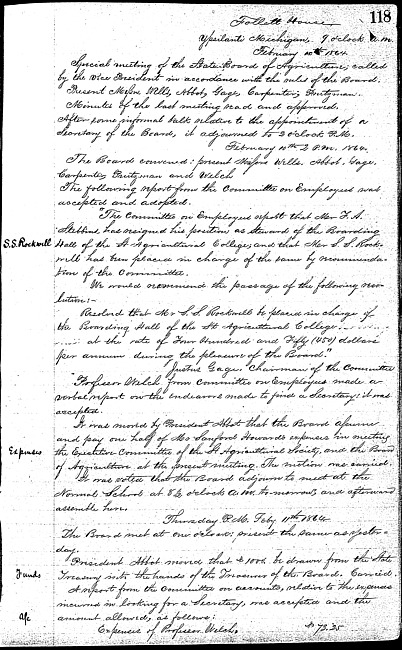 118
Follett House
Ypsilanti Michigan, 9 o'clock A.M.
February 10th 1864
Special meeting of the State Board of Agriculture, called
by the Vice President in accordance with the rules of the Board.
Present Messrs Wells, Abbot, Gage, Carpenter,
Minutes of the last meeting read and approved.
After some informal talk relative to the appointment of a
Secretary of the Board, it adjourned to 2 o'clock P.M.
February 10th 2 P.M. 1864.
The Board convened: present Messrs Wells. Abbot. Gage.
Carpenter and Welch
The following report from the Committee on Employees was
accepted and adopted.
"The Committee on Employees report that Mr
Stebbins, has resigned his position as Steward of the Boarding
S.S. Rockwell
Hall of the St Agricultural College, and that Mr S. S. Rock-
well has been placed in charge of the same by recommenda-
tion of the Committee.
We would recommend the passage of the following reso-
lution:-
Resolved that Mr S. S. Rockwell be placed in charge of
the Boarding Hall of the St Agricultural College
at the rate of Four Hundred and Fifty (450) dollars
per annum during the pleasure of the Board."
Justus Gage. Chairman of the Committee
Professor Welch from Committee on Employees made a
verbal report on the endeavors made to find a Secretary: it was
accepted.
It was moved by President Abbot that the Board assume
and pay one half of Mr Sanford Howards expenses in meeting
Expenses
the Executive Committee of the St Agricultural Society, and the Board
of Agriculture at the present meeting. The motion was carried.
It was voted that the Board adjourn to meet at the
Normal School at 8½ o'clock A.M. tomorrow, and afterward
assemble here.
Thursday P.M. Feby 11th 1864
The Board met at one o'clock; present the same as yester-
day.
President Abbot moved that $ be drawn from the State
Funds
Treasury into the hands of the Treasurer of the Board. Carried.
A report from the Committee on accounts, relative to the expenses
incurred in looking for a Secretary, was accepted and the
a/c
amount allowed, as follows:
Expenses of Professor Welch, $ 73.35